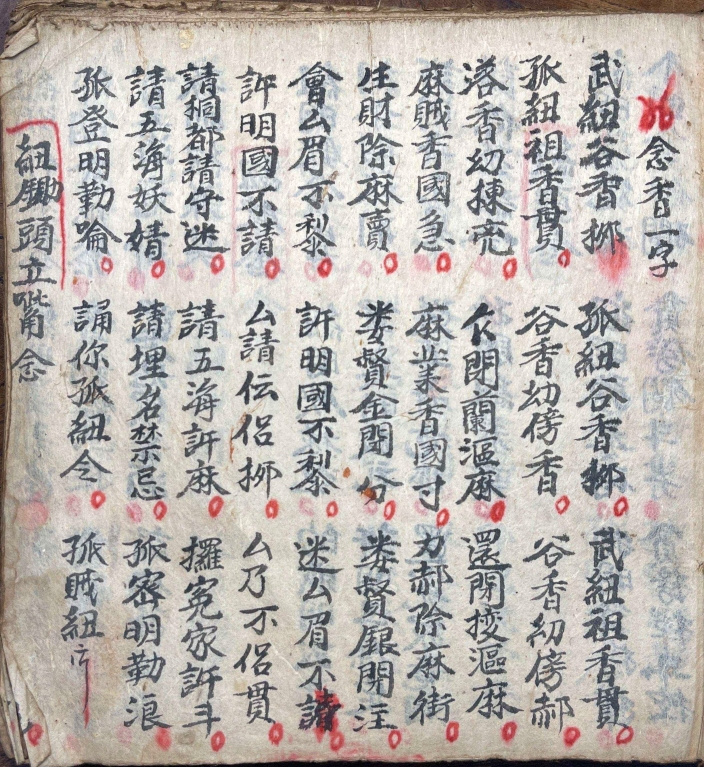 念香一字
武紐谷香挷 孤紐谷香挷 武紐祖香貫
孤紐祖香貫 谷香幼傍香 谷香幼傍郝
洛香幼揀 閉蘭漚麻 還閉捘漚麻
麻賊香國急 麻業香國寸 力郝除麻街
生財除麻賣 娄賢金閉分 娄賢銀閉注
會厶眉不黎 訢明國不黎 迷厶眉不請
訢明國不請 厶請伝侶挷 厶乃不侶貫
請桐都請守迷 請五海訢麻 攞冤家訢斗
請五海妖婧 請埋名禁忌 孤密明勤浪
孤登明勤喻 誦你孤紐令 孤賊紐
紐頭立嘴念